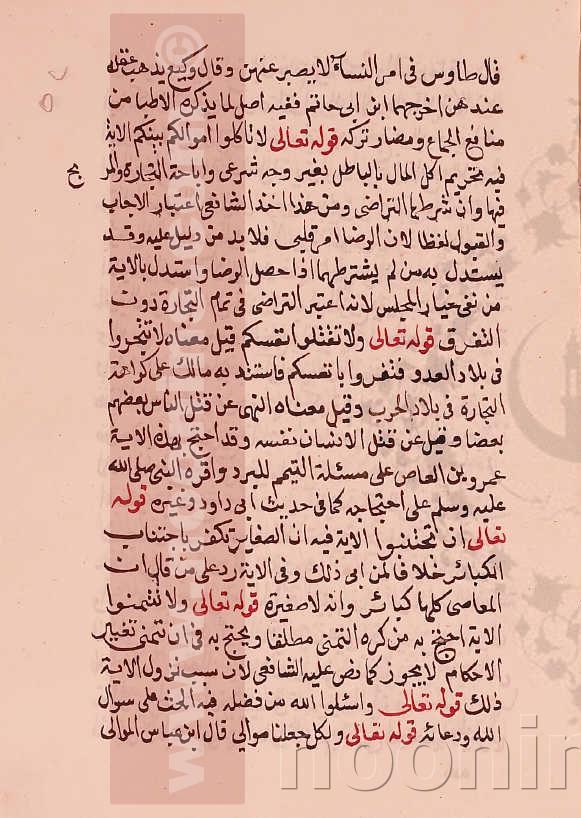 قال طاوس فى امر النساء لا يصبر عنهن وقال وكيع يذهب عقله
عندهن اخرجهما ابن ابى حاتم ففيه اصل لما يذكره الاطبا من
منافع الجماع ومضار تركه قوله تعالى لا تاكلوا اموالكم بينكم الاية
فيه تحريم اكل المال بالباطل بغير وجه شرعى واباحة التجارة والر
بح
فيها وان شرطها التراضى ومن هذا اخذ الشافعى اعتبار الايجاب
والقبول لفظا لان الرضا امر قلبى فلا بد من دليل عليه وقد
يستدل به من لم يشترطهما اذا حصل الرضا واستدل بالاية
من نفى خيار المجلس لانه اعتبر التراضى فى تمام التجارة دون
التفرق قوله تعالى ولا تقتلوا انفسكم قيل معناه لا تتجروا
فى بلاد العدو فتغروا بانفسكم فاستند به مالك على كراهة
التجارة فى بلاد الحرب وقيل معناه النهى عن قتل الناس بعضهم
بعضا وقيل عن قتل الانسان نفسه وقد احتج بهذه الاية
عمرو بن العاص على مسئلة التيمم للبرد واقره النبى صلى الله
عليه وسلم على احتجاجه كما فى حديث ابى داود وغيره قوله
تعالى ان تجتنبوا الاية فيه ان الصغاير تكفر باجتناب
الكبائر خلافا لمن ابى ذلك وفى الاية رد على من قال ان
المعاصى كلها كبائر وانه لا صغيرة قوله تعالى ولا تتمنوا
الاية احتج به من كره التمنى مطلقا ويحتج به فى ان تمنى تغيير
الاحكام لا يجوز كما نص عليه الشافعى لان سبب نزول الاية
ذلك قوله تعالى واسئلوا الله من فضله فيه الحث على سوال
الله ودعائه قوله تعالى ولكل جعلنا موالى قال ابن عباس الموالى
noonin